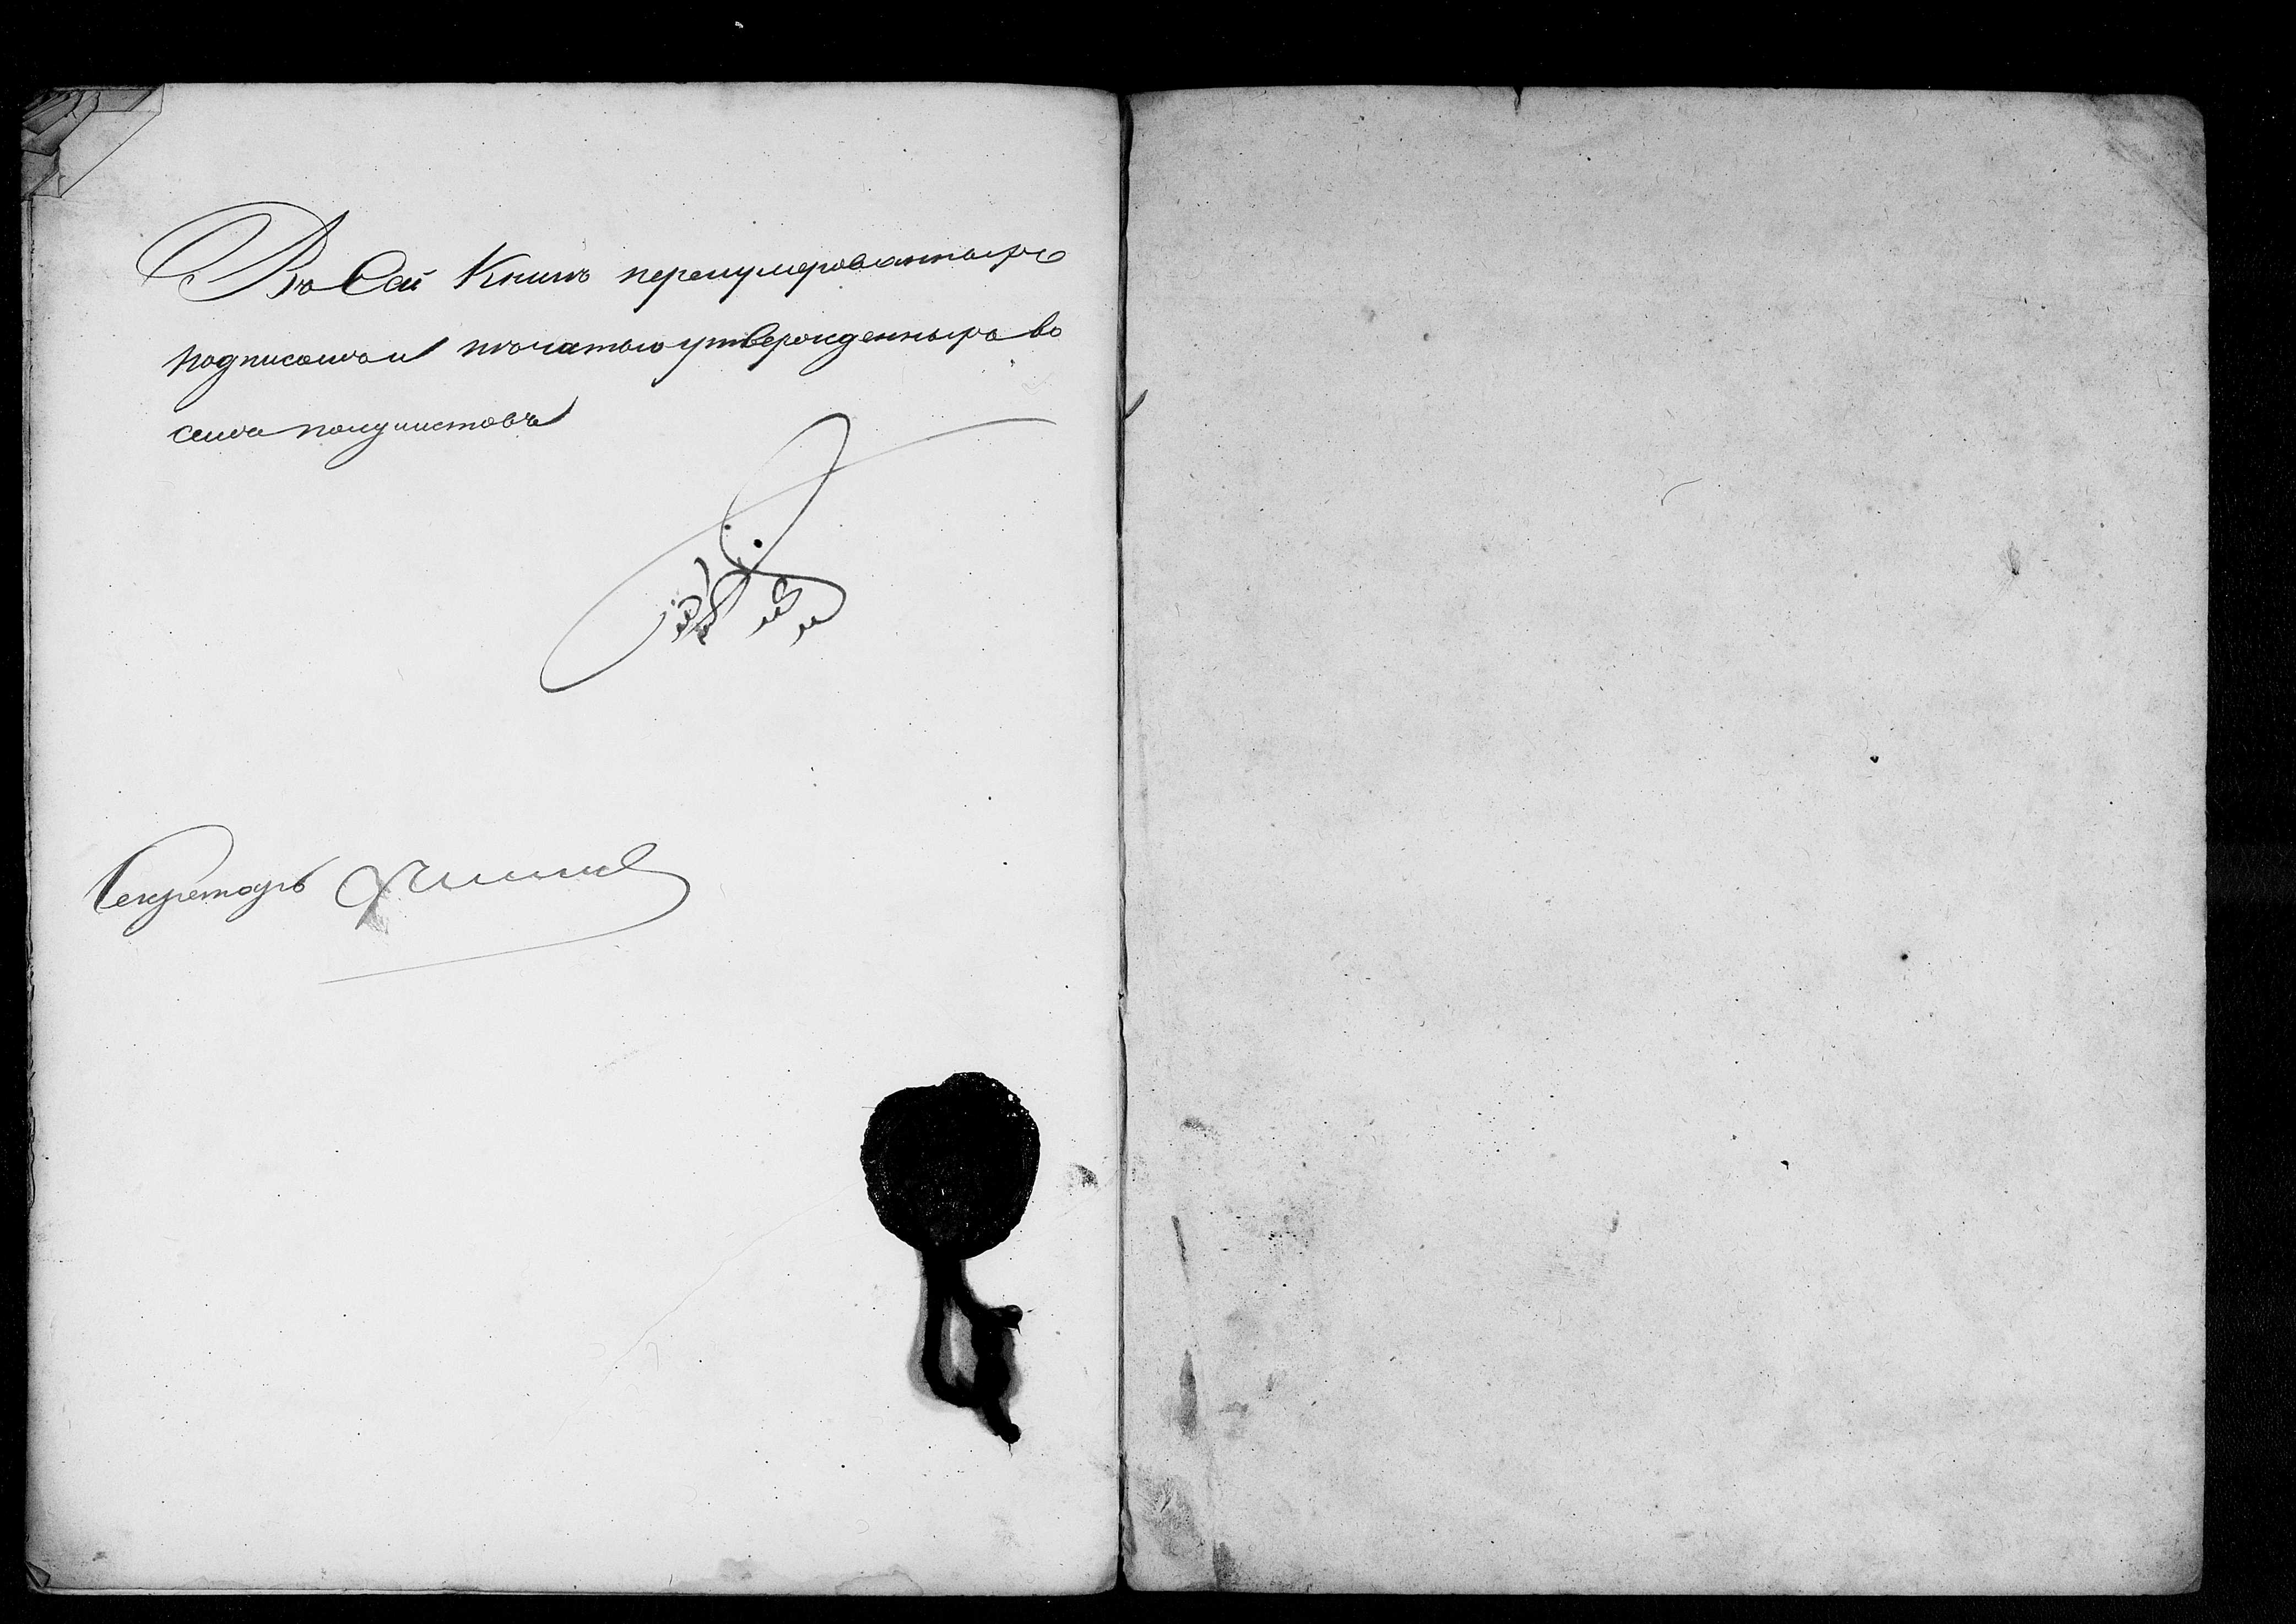 Въ Сей Книгъ перенумерованныхъ
подписомъ и пѣчатью утвержденныхъ во
семь полулистовъ
Секретарь